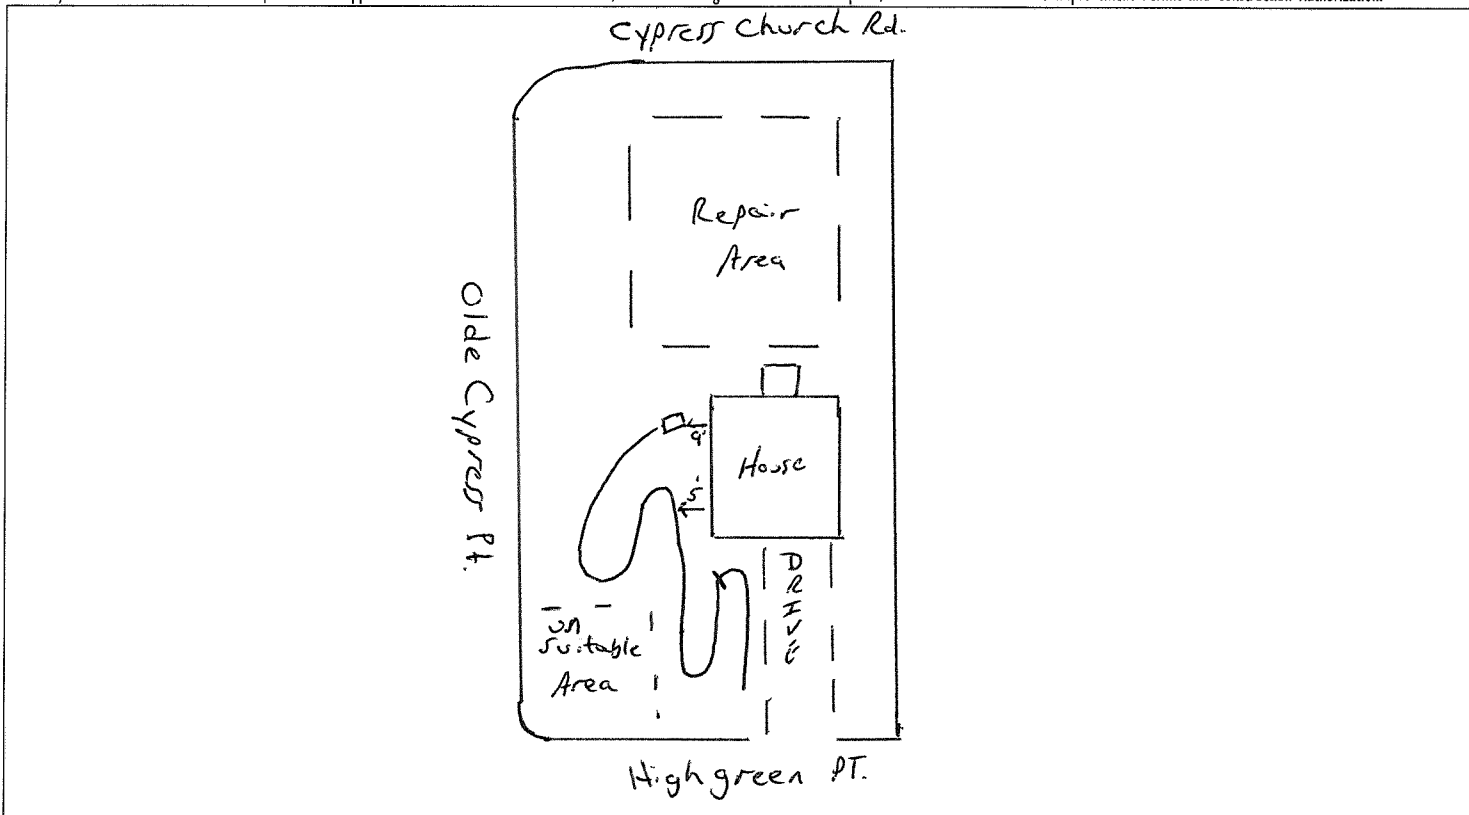 Cypress Church Rd.
Repair
Area
Olde Cypress Pt.
9'
5'
House
DRIVE
un
suitable
Area
Highgreen PT.